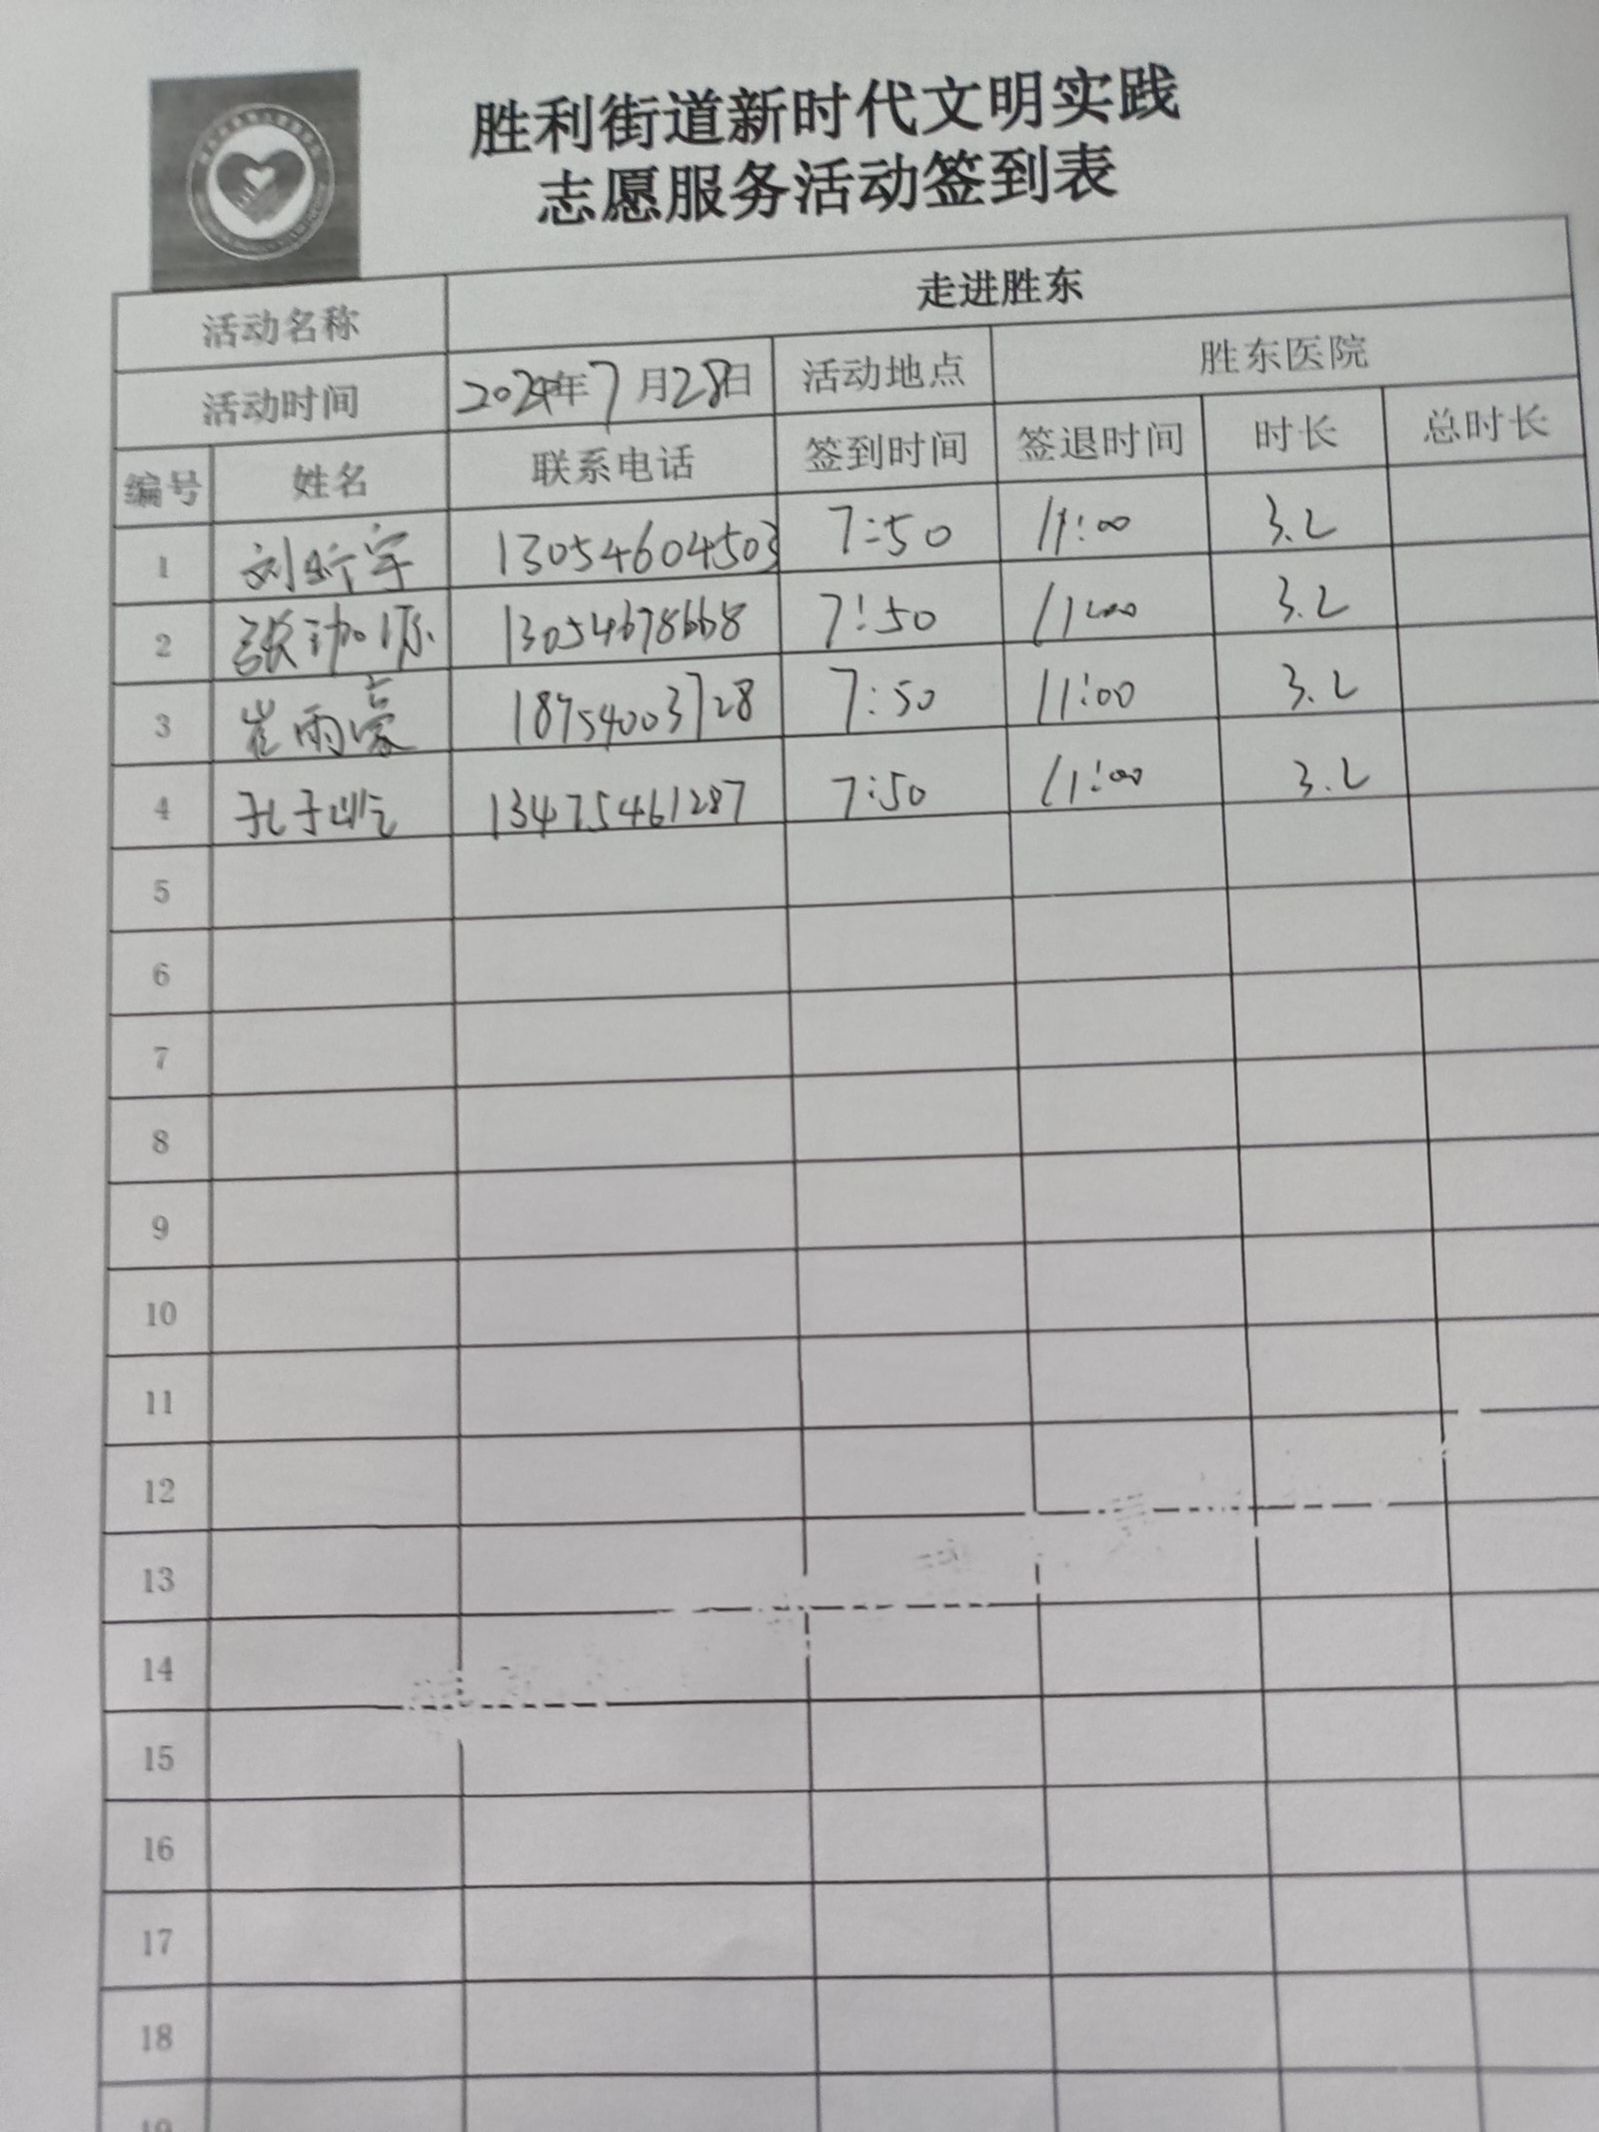 胜利街道新时代文明实践
志愿服务活动签到表
活动名称 走进胜东
活动时间 2024年7月28日 活动地点 胜东医院
编号 姓名 联系电话 签到时间 签退时间 时长 总时长
1 刘 宇 13054604503 7:50 11:00 3.2
2 张 13054678668 7:50 11:00 3.2
3 崔雨濠 18754003728 7:50 11:00 3.2
4 孔于屹 13475461287 7:50 11:00 3.2
5
6
7
8
9
10
11
12
13
14
15
16
17
18
19